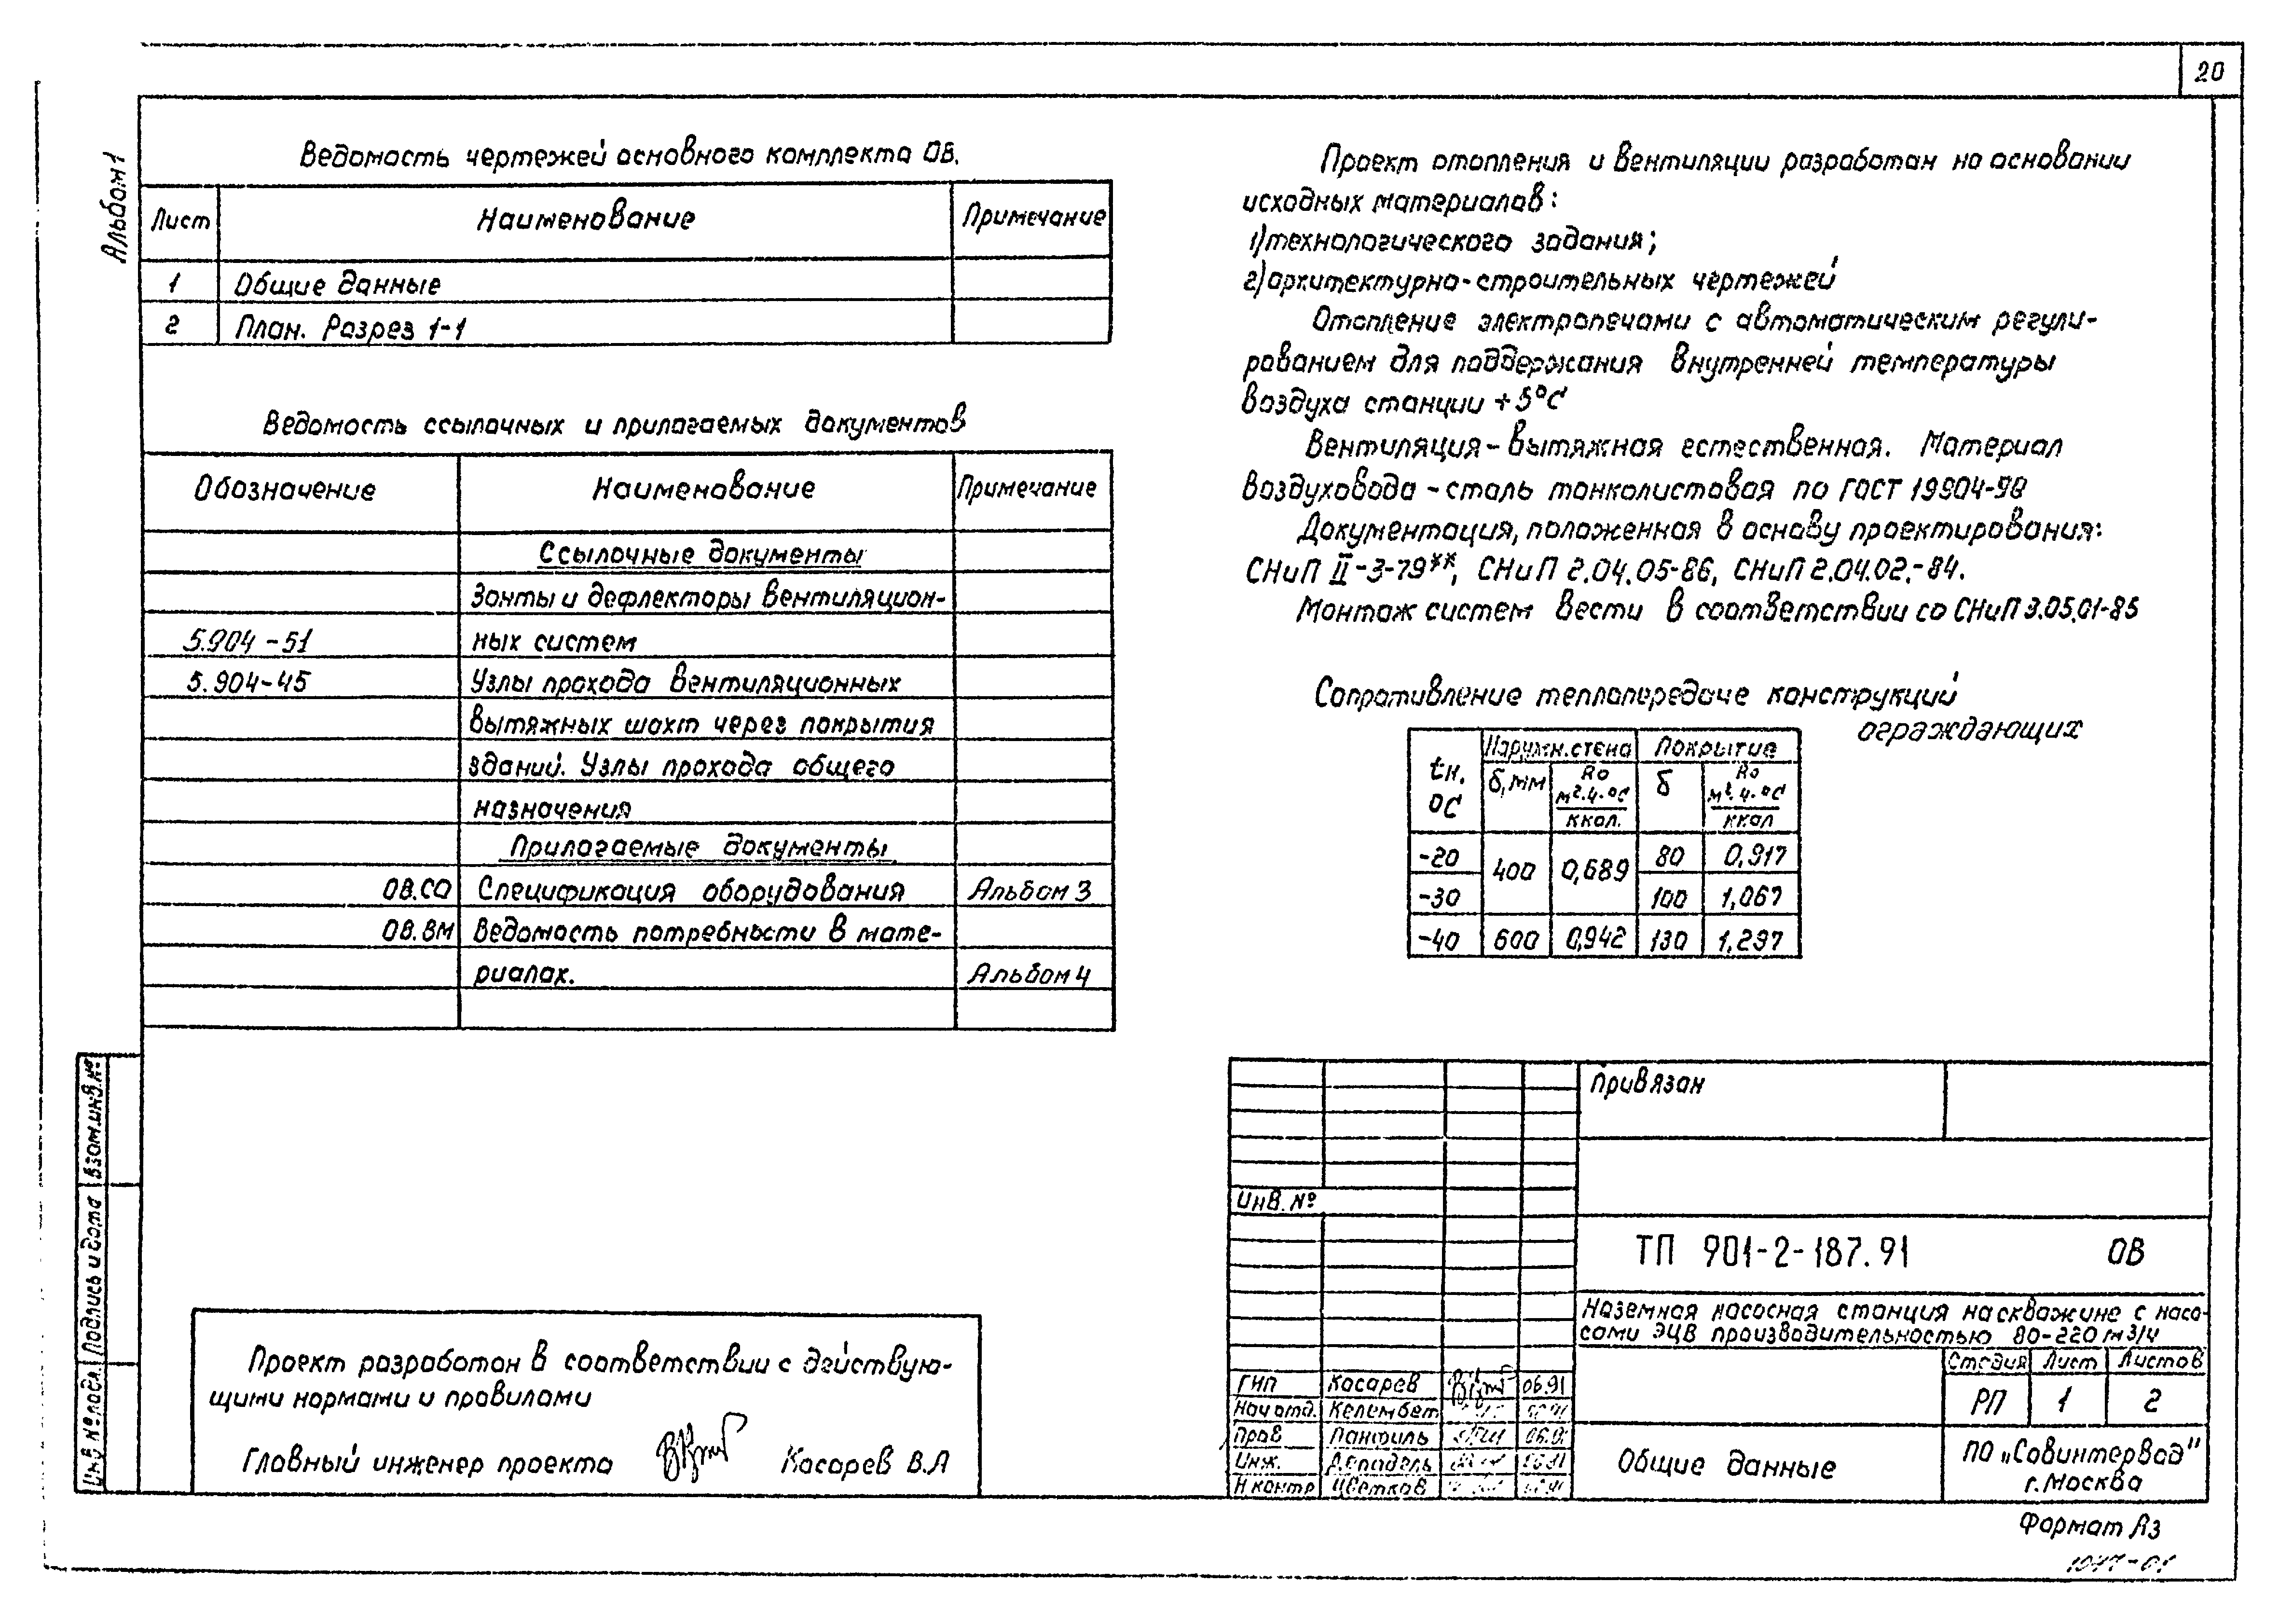 20
Альбом 1
Ведомость чертежей основного комплекта ОВ.
Лист Наименование Примечание
1 Общие данные
2 План. Разрез 1-1
Ведомость ссылочных и прилагаемых документов
Обозначение Наименование Примечание
Ссылочные документы
Зонты и дефлекторы вентиляцион-
5.904-51 ных систем
5.904-45 Узлы прохода вентиляционных
вытяжных шахт через покрытия
зданий. Узлы прохода общего
назначения
Прилагаемые документы
ОВ.СО Спецификация оборудования Альбом 3
ОВ.ВМ Ведомость потребности в мате-
риалах. Альбом 4
Проект отопления и вентиляции разработан на основании
исходных материалов:
1) технологического задания;
2) архитектурно-строительных чертежей
Отопление электропечами с автоматическим регули-
рованием для поддержания внутренней температуры
воздуха станции +5°С
Вентиляция - вытяжная естественная. Материал
воздуховода - сталь тонколистовая по ГОСТ 19904-90
Документация, положенная в основу проектирования:
СНиП II-3-79**, СНиП 2.04.05-86, СНиП 2.04.02.-84.
Монтаж систем вести в соответствии со СНиП 3.05.01-85
Сопротивление теплопередаче конструкций
ограждающих
tн. °С Наружн. стена Покрытие
δ, мм Rо м².ч.°С/ккал. δ Rо м².ч.°С/ккал
-20 400 0,689 80 0,917
-30 100 1,067
-40 600 0,942 130 1,297
Взам. инв. №
Подпись и дата
Инв № подл.
Проект разработан в соответствии с действую-
щими нормами и правилами
Главный инженер проекта Косарев В.А
Привязан
Инв. №
ТП 901-2-187.91 ОВ
Наземная насосная станция на скважине с насо-
сами ЭЦВ производительностью 80-220 м3/ч
Стадия Лист Листов
РП 1 2
ГИП Косарев 06.91
Нач отд. Келембет
Пров Панфиль
Инж.
Н контр Цветков
Общие данные
ПО "Совинтервод"
г. Москва
Формат А3